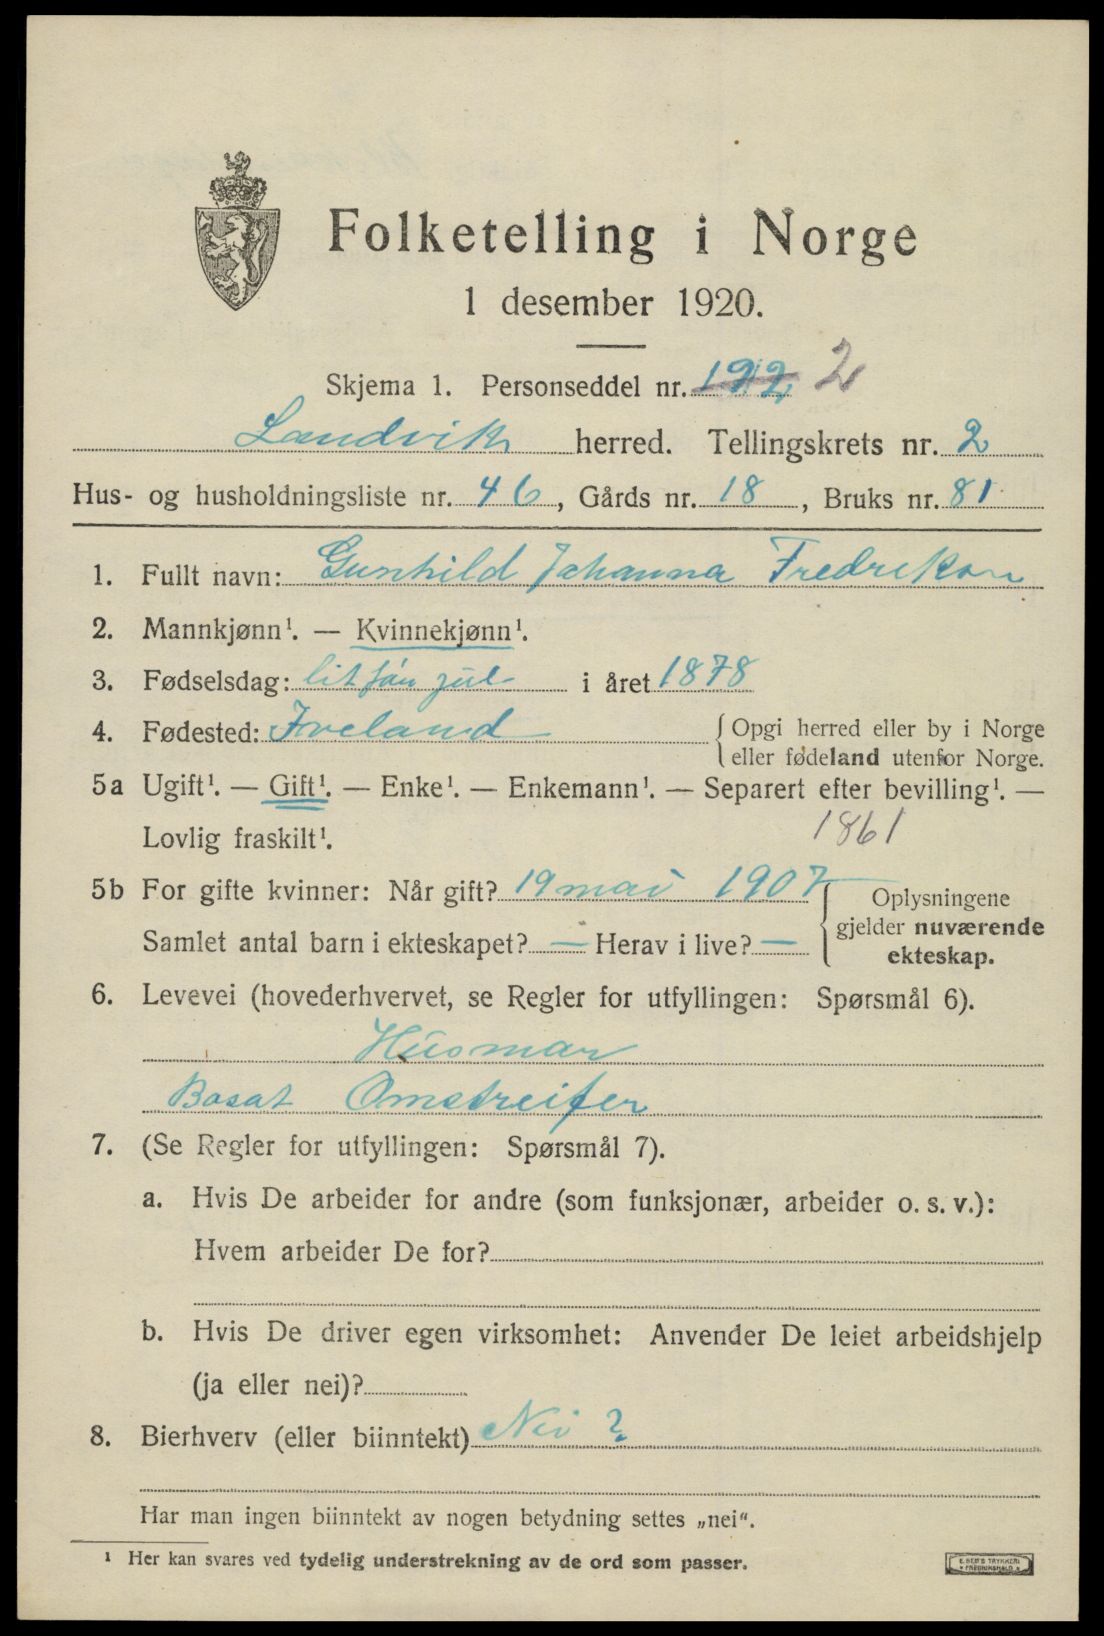 Folketelling i Norge
1 desember 1920.
Skjema 1. Personseddel nr. 122 2
Landvik herred. Tellingskrets nr. 2
Hus- og husholdningsliste nr. 46, Gårds nr. 18, Bruks nr. 81
1. Fullt navn: Gunhild Johanna Fredrikson
2. Mannkjønn¹. — Kvinnekjønn¹.
3. Fødselsdag: lit før jul i året 1878
4. Fødested: Iveland { Opgi herred eller by i Norge
eller fødeland utenfor Norge.
5a Ugift¹. — Gift¹. — Enke¹. — Enkemann¹. — Separert efter bevilling¹. —
Lovlig fraskilt¹. 1861
5b For gifte kvinner: Når gift? 19 mai 1907 { Oplysningene
Samlet antal barn i ekteskapet? — Herav i live? — gjelder nuværende
ekteskap.
6. Levevei (hovederhvervet, se Regler for utfyllingen: Spørsmål 6).
Husmor
Bosat Omstreifer
7. (Se Regler for utfyllingen: Spørsmål 7).
a. Hvis De arbeider for andre (som funksjonær, arbeider o. s. v.):
Hvem arbeider De for?
b. Hvis De driver egen virksomhet: Anvender De leiet arbeidshjelp
(ja eller nei)?
8. Bierhverv (eller biinntekt) Nei ?
Har man ingen biinntekt av nogen betydning settes „nei“.
¹ Her kan svares ved tydelig understrekning av de ord som passer.
E. SEM'S TRYKKERI
FREDRIKSHALD